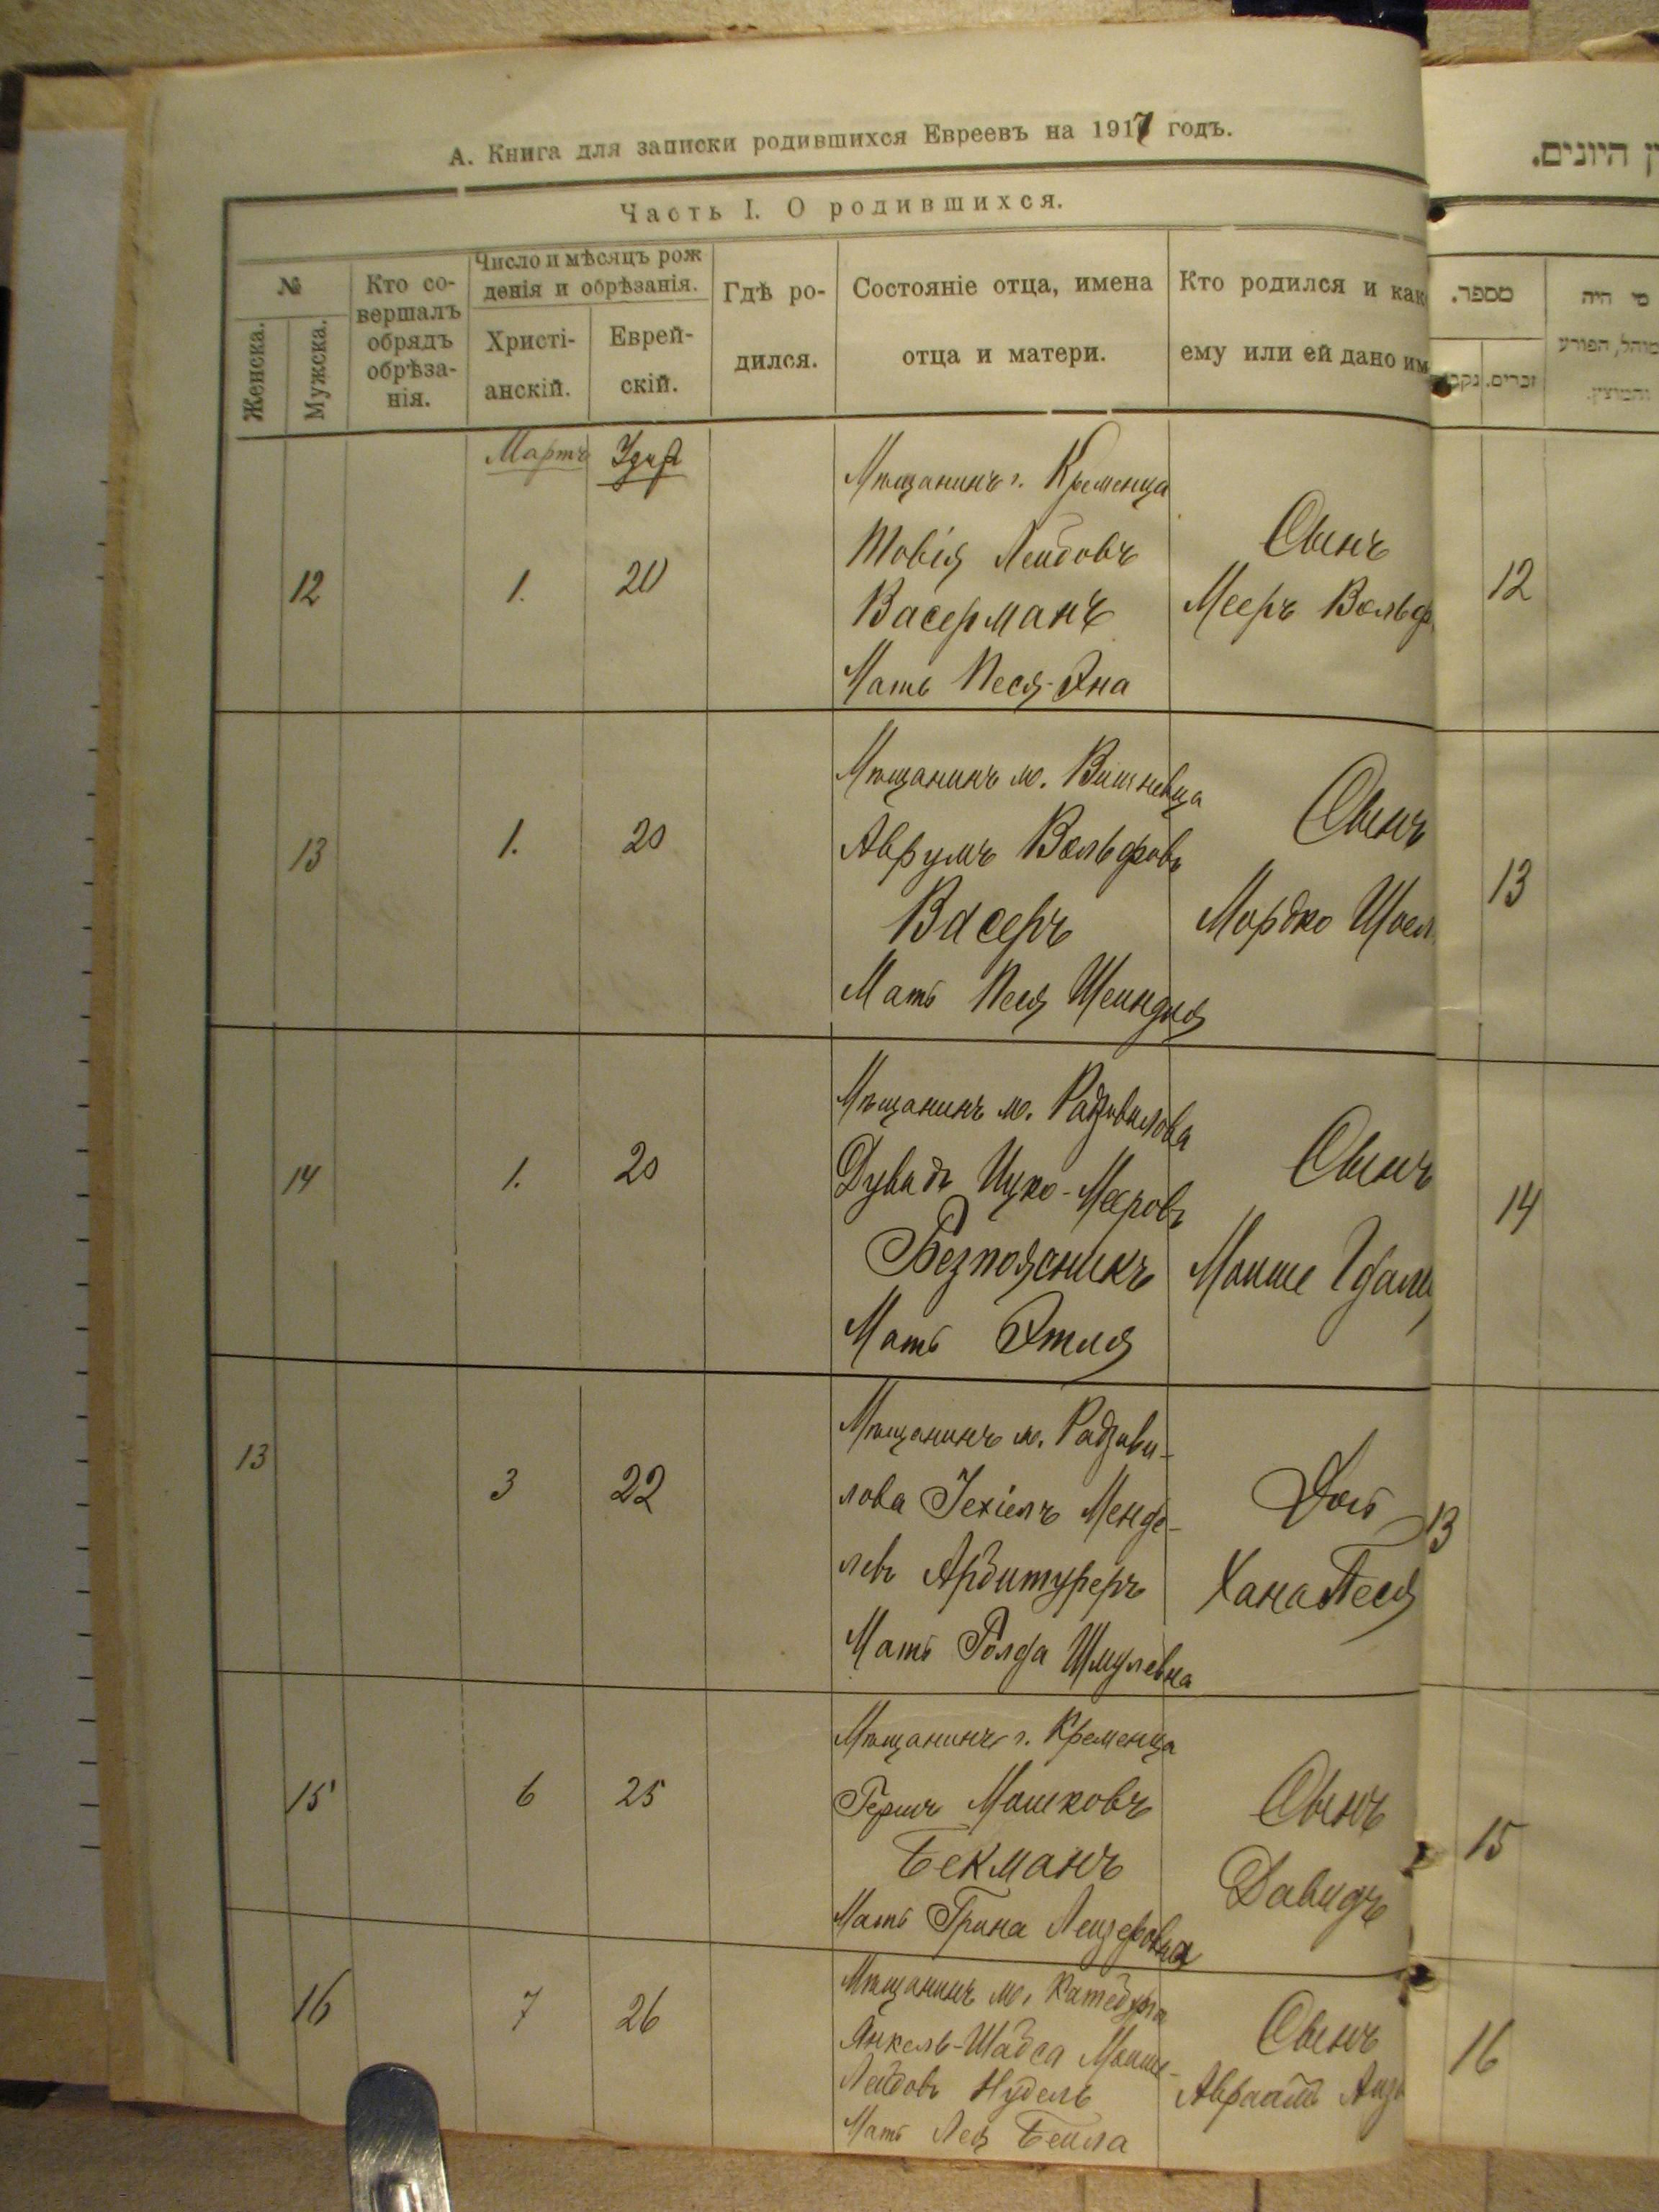 А. Книга для записки родившихся Евреевъ на 1917 годъ.
Часть I. О родившихся.
№
Женска.
Мужска.
Кто со-
вершалъ
обрядъ
обрѣза-
нія.
Число и мѣсяцъ рож
денія и обрѣзанія.
Христі-
анскій.
Еврей-
скій.
Гдѣ ро-
дился.
Состояніе отца, имена
отца и матери.
Кто родился и как
ему или ей дано им
ן היונים.
מספר.
זכרים.
מי היה
מוהל, הפורע
והמוצץ.
Мартъ
12
1.
20
Мѣщанинъ г. Кременца
Товія Лейбовъ
Васерманъ
Мать Песя-Эна
Сынъ
Мееръ Вольф
12
13
1.
20
Мѣщанинъ м. Вишневца
Аврумъ Вольфовъ
Васеръ
Мать Песя Шейндля
Сынъ
Мордко
13
14
1.
20
Мѣщанинъ м. Радзивилова
Дувидъ Ицко-Мееровъ
Безпоясникъ
Мать Этля
Сынъ
Моише Гдали
14
13
3
22
Мѣщанинъ м. Радзиви-
лова Іехіелъ Менде-
левъ Арбитуреръ
Мать Голда Шмулевна
Доч
Хана Песя
13
15
6
25
Мѣщанинъ г. Кременца
Гершъ Мошковъ
Бекманъ
Мать Лейзеровна
Сынъ
Давидъ
15
16
7
26
Мѣщанинъ м. Катербурга
Янкель-Шабса Моише-
Лейбовъ Нудель
Мать Лея Бейла
Сынъ
Авраамъ
16